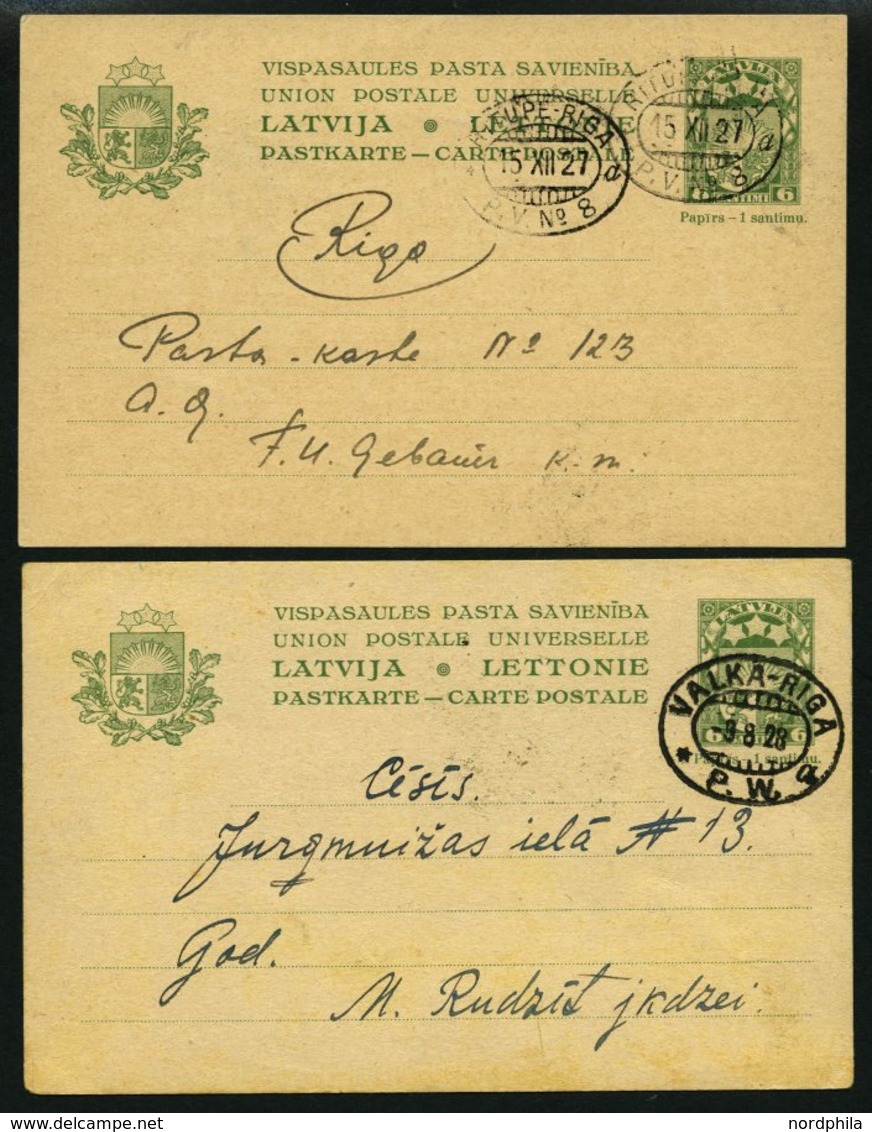 VISPASAULES PASTA SAVIENĪBA
UNION POSTALE UNIVERSELLE
LATVIJA • LETTONIE
PASTKARTE — CARTE POSTALE
LATVIJA
6 SANTIMI 6
Papīrs – 1 santimu.
RITUPE-RIGA
15 XII 27
P.V. № 8 d
RITUPE-RIGA
15 XII 27
P.V. № 8 d
Rīga
Pasta-kaste № 123
F. U. Gebauer k-m.
VISPASAULES PASTA SAVIENĪBA
UNION POSTALE UNIVERSELLE
LATVIJA • LETTONIE
PASTKARTE — CARTE POSTALE
LATVIJA
6 SANTIMI 6
Papīrs – 1 santimu.
VALKA-RIGA
-9 8 28
* P. W. a
Cēsīs.
Jurgmuižas ielā № 13.
God.
M. Rudzīt jkdzei
nordphila